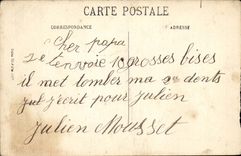 CARTE POSTALE
CORRESPONDANCE ADRESSE
Cher papa
Je t'envoie 10 grosses bises
il met tomber ma 2e dents
jul j'ecrit pour julien
Julien Mousset